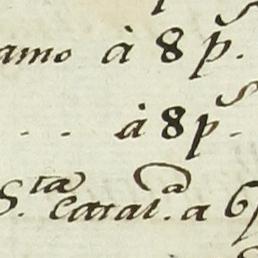 amo à 8 p.^s
. . à 8 p.^s
S.^ta Catal.^a a 6